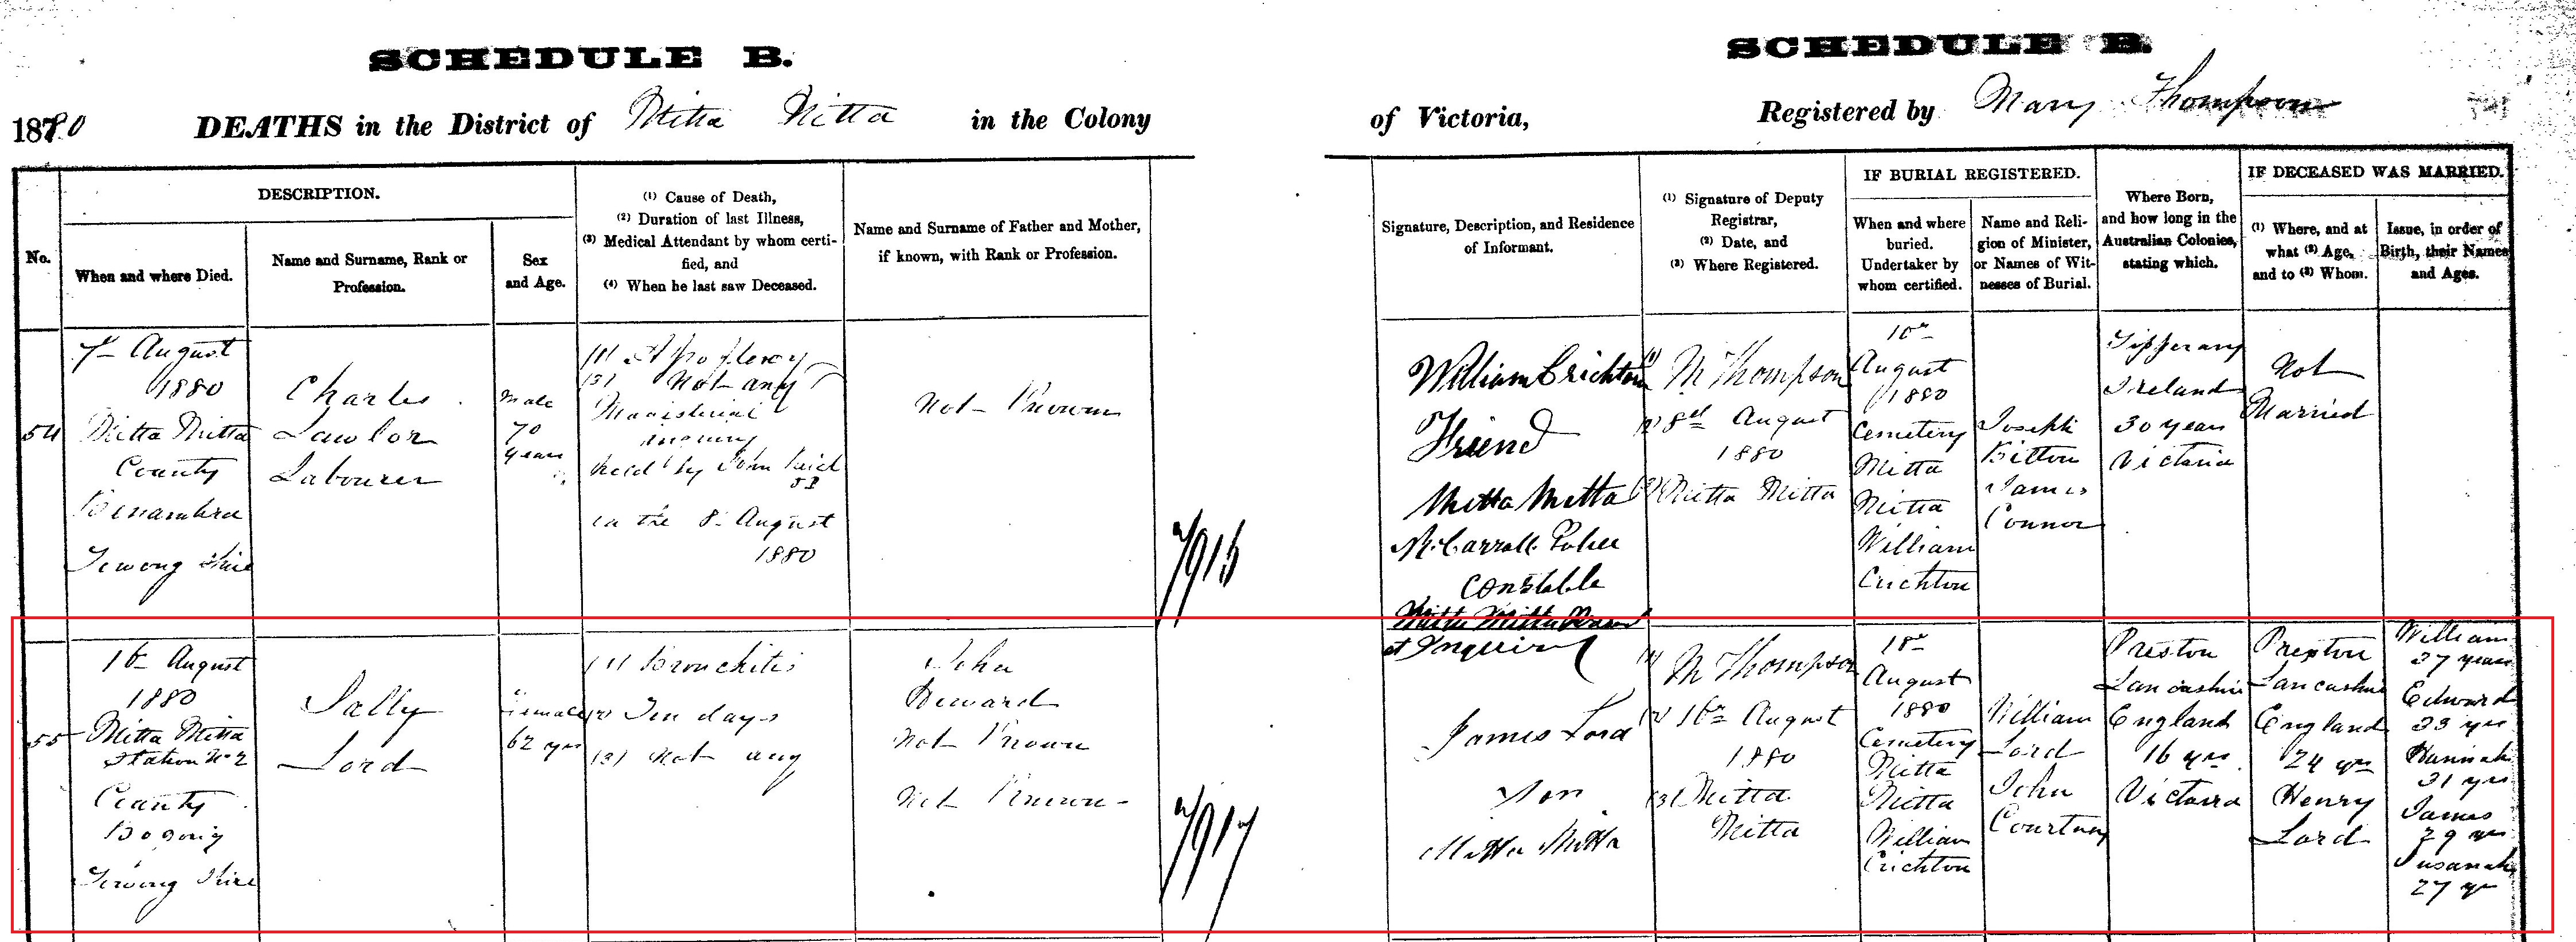 SCHEDULE B.
SCHEDULE B.
1880 DEATHS in the District of Mitta Mitta in the Colony
of Victoria, Registered by Mary Thompson
No.
DESCRIPTION.
When and where Died.
Name and Surname, Rank or
Profession.
Sex
and Age.
(1) Cause of Death,
(2) Duration of last Illness,
(3) Medical Attendant by whom certi-
fied, and
(4) When he last saw Deceased.
Name and Surname of Father and Mother,
if known, with Rank or Profession.
Signature, Description, and Residence
of Informant.
(1) Signature of Deputy
Registrar,
(2) Date, and
(3) Where Registered.
IF BURIAL REGISTERED.
When and where
buried.
Undertaker by
whom certified.
Name and Reli-
gion of Minister,
or Names of Wit-
nesses of Burial.
Where Born,
and how long in the
Australian Colonies,
stating which.
IF DECEASED WAS MARRIED.
(1) Where, and at
what (2) Age,
and to (3) Whom.
Issue, in order of
Birth, their Names
and Ages.
54
7th August
1880
Mitta Mitta
County
Benambra
Towong Shire
Charles
Lawlor
Labourer
Male
70
years
(1) Apoplexy
(3) Not any
Magisterial
inquiry
held by John
on the 8th August
1880
Not Known
7916
William Crichton
Friend
Mitta Mitta
Carroll Police
Constable
Mitta Mitta
at Inquiry
(1) M Thompson
(2) 8th August
1880
(3) Mitta Mitta
10th
August
1880
Cemetery
Mitta
Mitta
William
Crichton
Joseph
Bitton
James
Connor
Tipperary
Ireland
30 years
Victoria
Not
Married
55
16th August
1880
Mitta Mitta
Station No 2
County
Bogong
Towong Shire
Sally
Lord
Female
62 yrs
(1) Bronchitis
(2) Ten days
(3) Not any
John
Howard
Not Known
Not Known
7917
James Lord
Son
Mitta Mitta
(1) M Thompson
(2) 16th August
1880
(3) Mitta
Mitta
18th
August
1880
Cemetery
Mitta
Mitta
William
Crichton
William
Lord
John
Courtney
Preston
Lancashire
England
16 yrs
Victoria
Preston
Lancashire
England
24 yrs
Henry
Lord
William
37 years
Edward
33 yrs
Hannah
31 yrs
James
29 yrs
Susanah
27 yrs